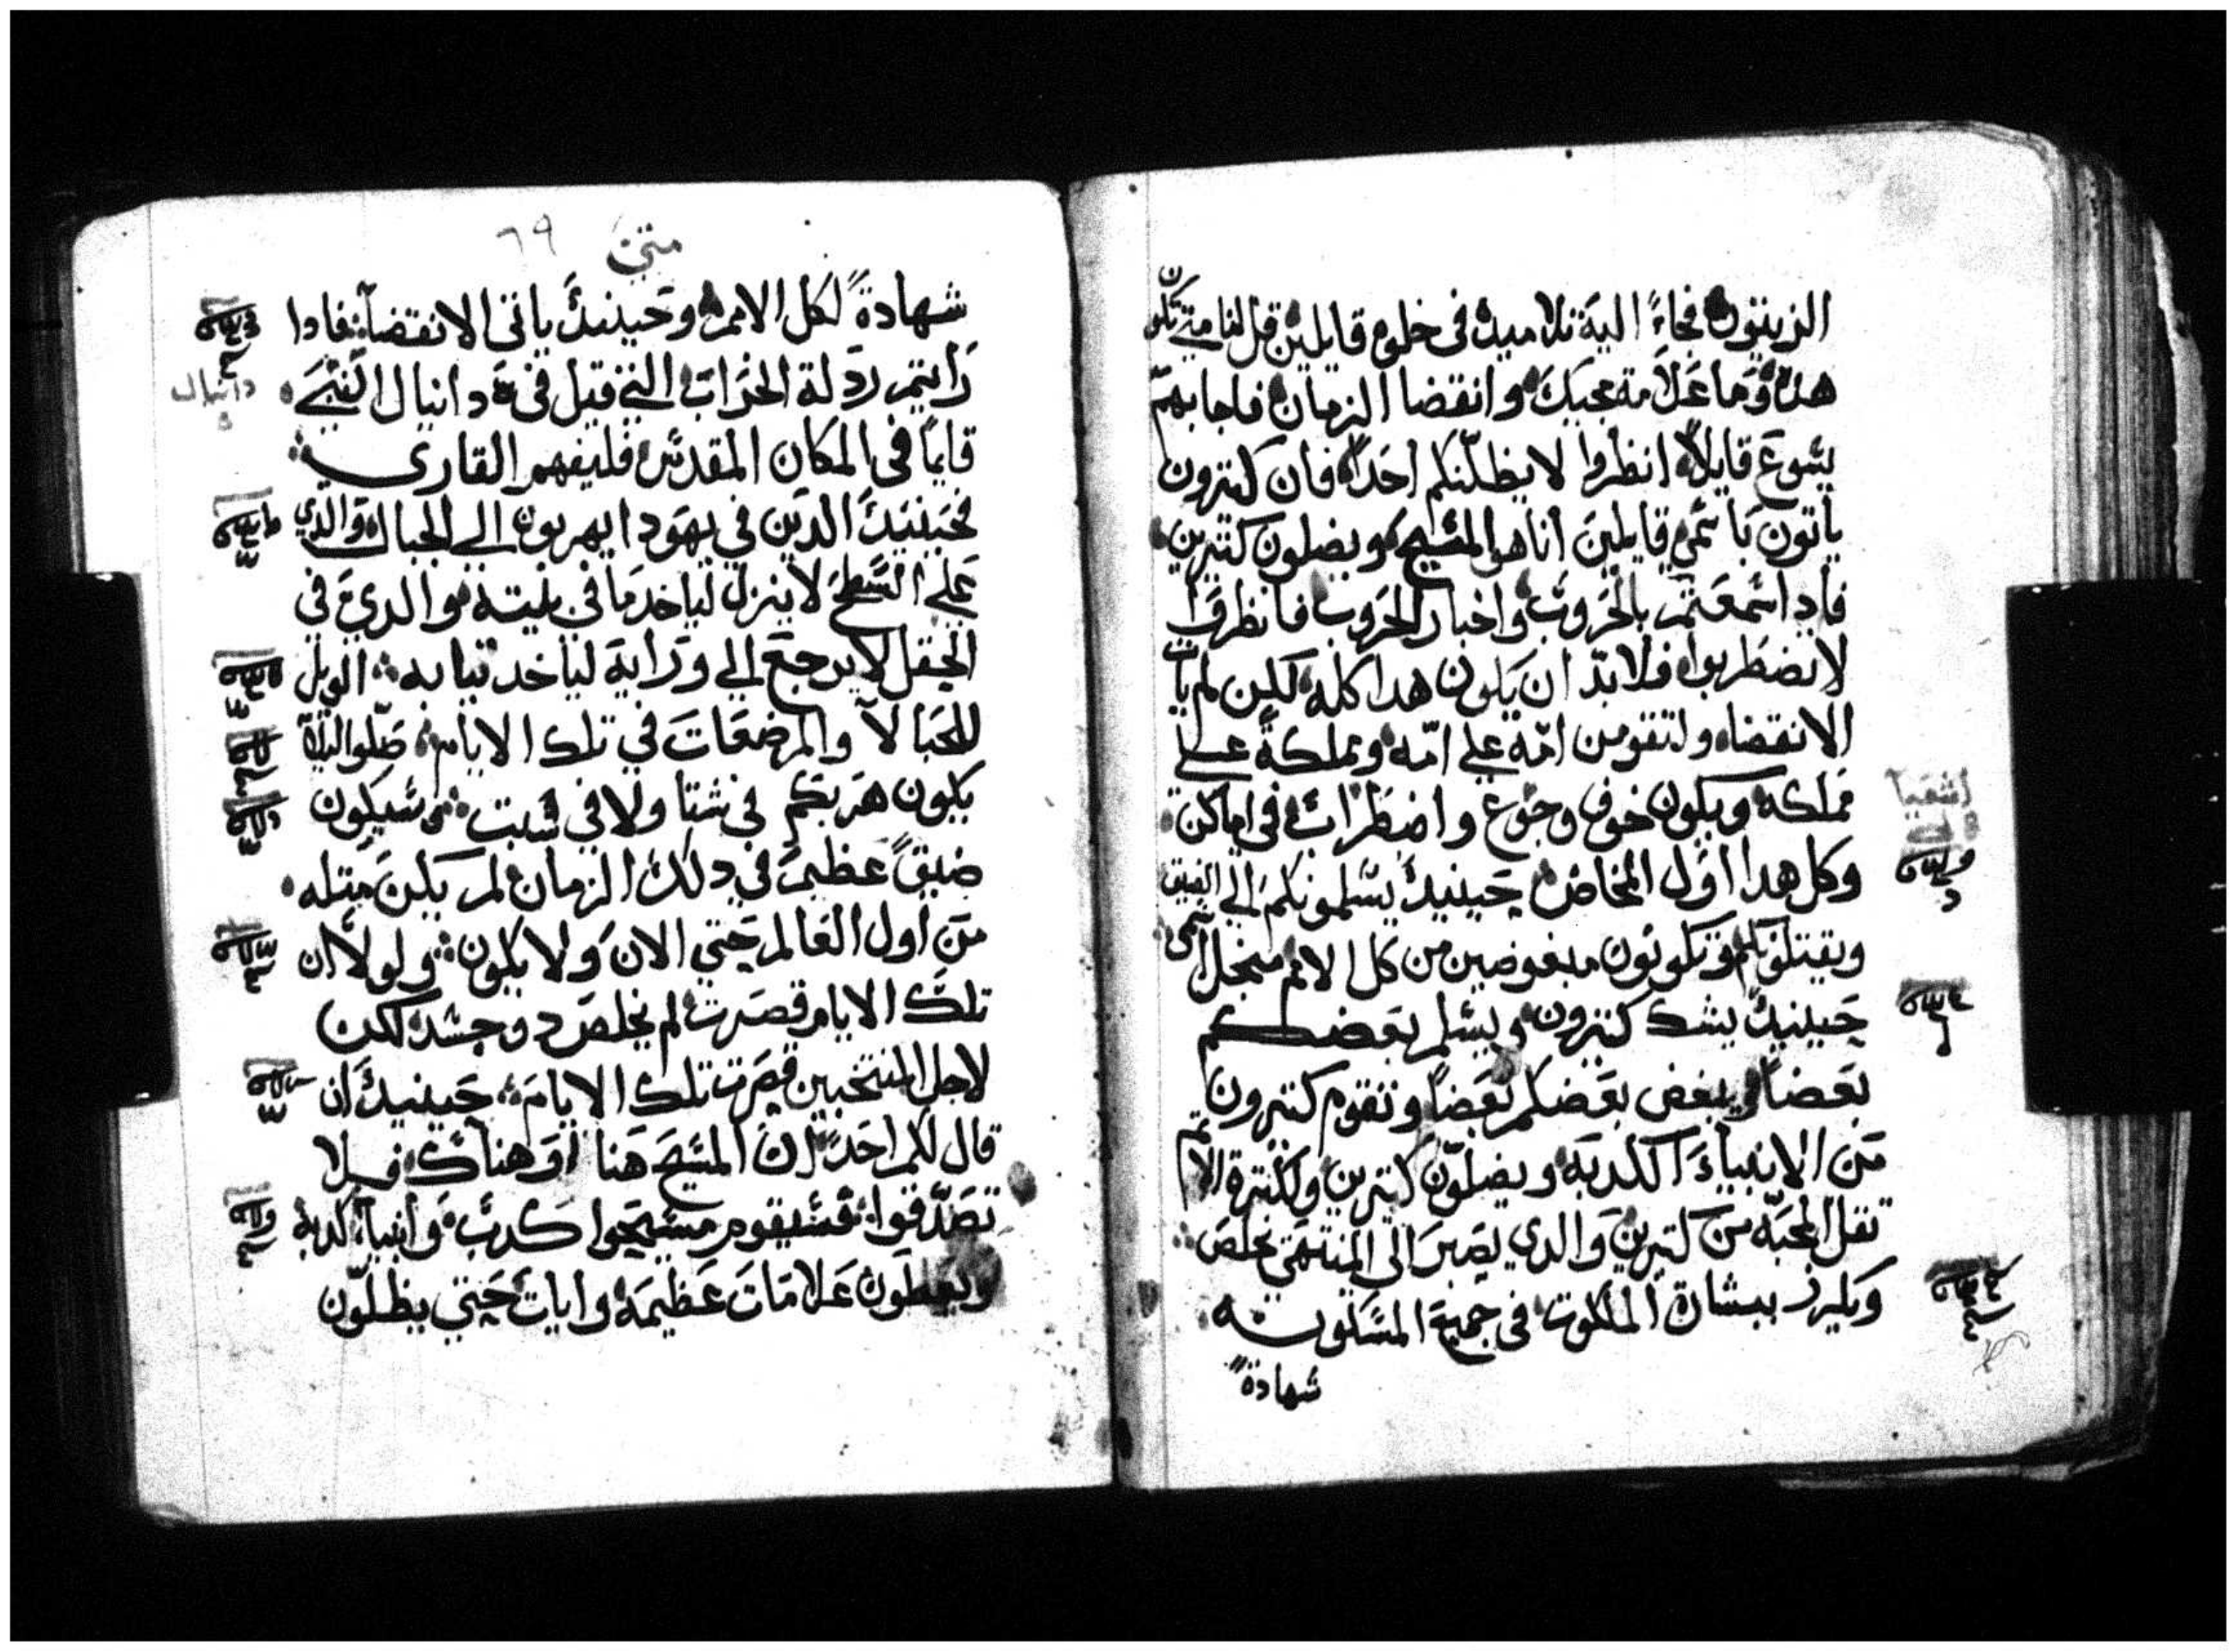 الزيتون فجاءً اليه تلاميده فى خلوه قايلين قل لنا متي تكون
هده وما علامة مجيك وانقضا الزمان فاجابهم
يسوع قايلاً انظروا لا يظلّنكم احدا فان كتيرون
ياتون باسمي قايلين انا هو المسيح ويضلون كتيرين
فادا سمعتم بالحروب واخبار الحروب فانظروا
لا تضطربوا فلا بدّ ان يكون هدا كله لكن لم يات
الانقضاء ولتقومن امّة علي امّه ومملكةً علي
مملكه ويكون خوف وجوع واضطراب فى اماكن
وكل هدا اول المخاض حينيد يسلمونكم الي الضيق
ويقتلونكم وتكونون مبغوضين من كل الامم من اجل اسمي
حينيد يشك كتيرون ويسلم بعضكم
بعضاً ويبغض بعضكم بعضاً وتقوم كتيرون
من الانبياء الكدبه ويضلّون كتيرين ولكترة الاتم
تقل المحبّه من كتيرين والدي يصبر الي المنتهي يخلص
ويكرز ببشارة الملكوت فى جميع المسكونه
شهادةً
اشعيا
متي
٦٩
شهادةً لكل الامم وحينيد ياتى الانقضآ فادا
رايتم ردلة الخراب التي قيل فى دانيال النبي
قايمًا فى المكان المقدس فليفهم القاري
فحينيد الدين في يهودا يهربون الي الجبال والدي
علي السطح لا ينزل لياخد ما في بيته والدي في
الحقل لا يرجع الي ورايه لياخد تيابه الويل
للحبالا والمرضعات في تلك الايام صلّوا ليلا
يكون هربكم في شتا ولا في سبت سيكون
ضيقً عظيم في دلك الزمان لم يكن متله
من اول العالم حتي الان ولا يكون ولولا ان
تلك الايام قصرت لم يخلص دو جسد لكن
لاجل المنتخبين قصرت تلك الايام حينيد ان
قال لكم احد ان المسيح هنا او هناك فلا
تصدّقوا فسيقوم مسيحوا كدب وانبيا كدبه
ويعطون علامات عظيمه وايات حتي يظلّون
دانيال